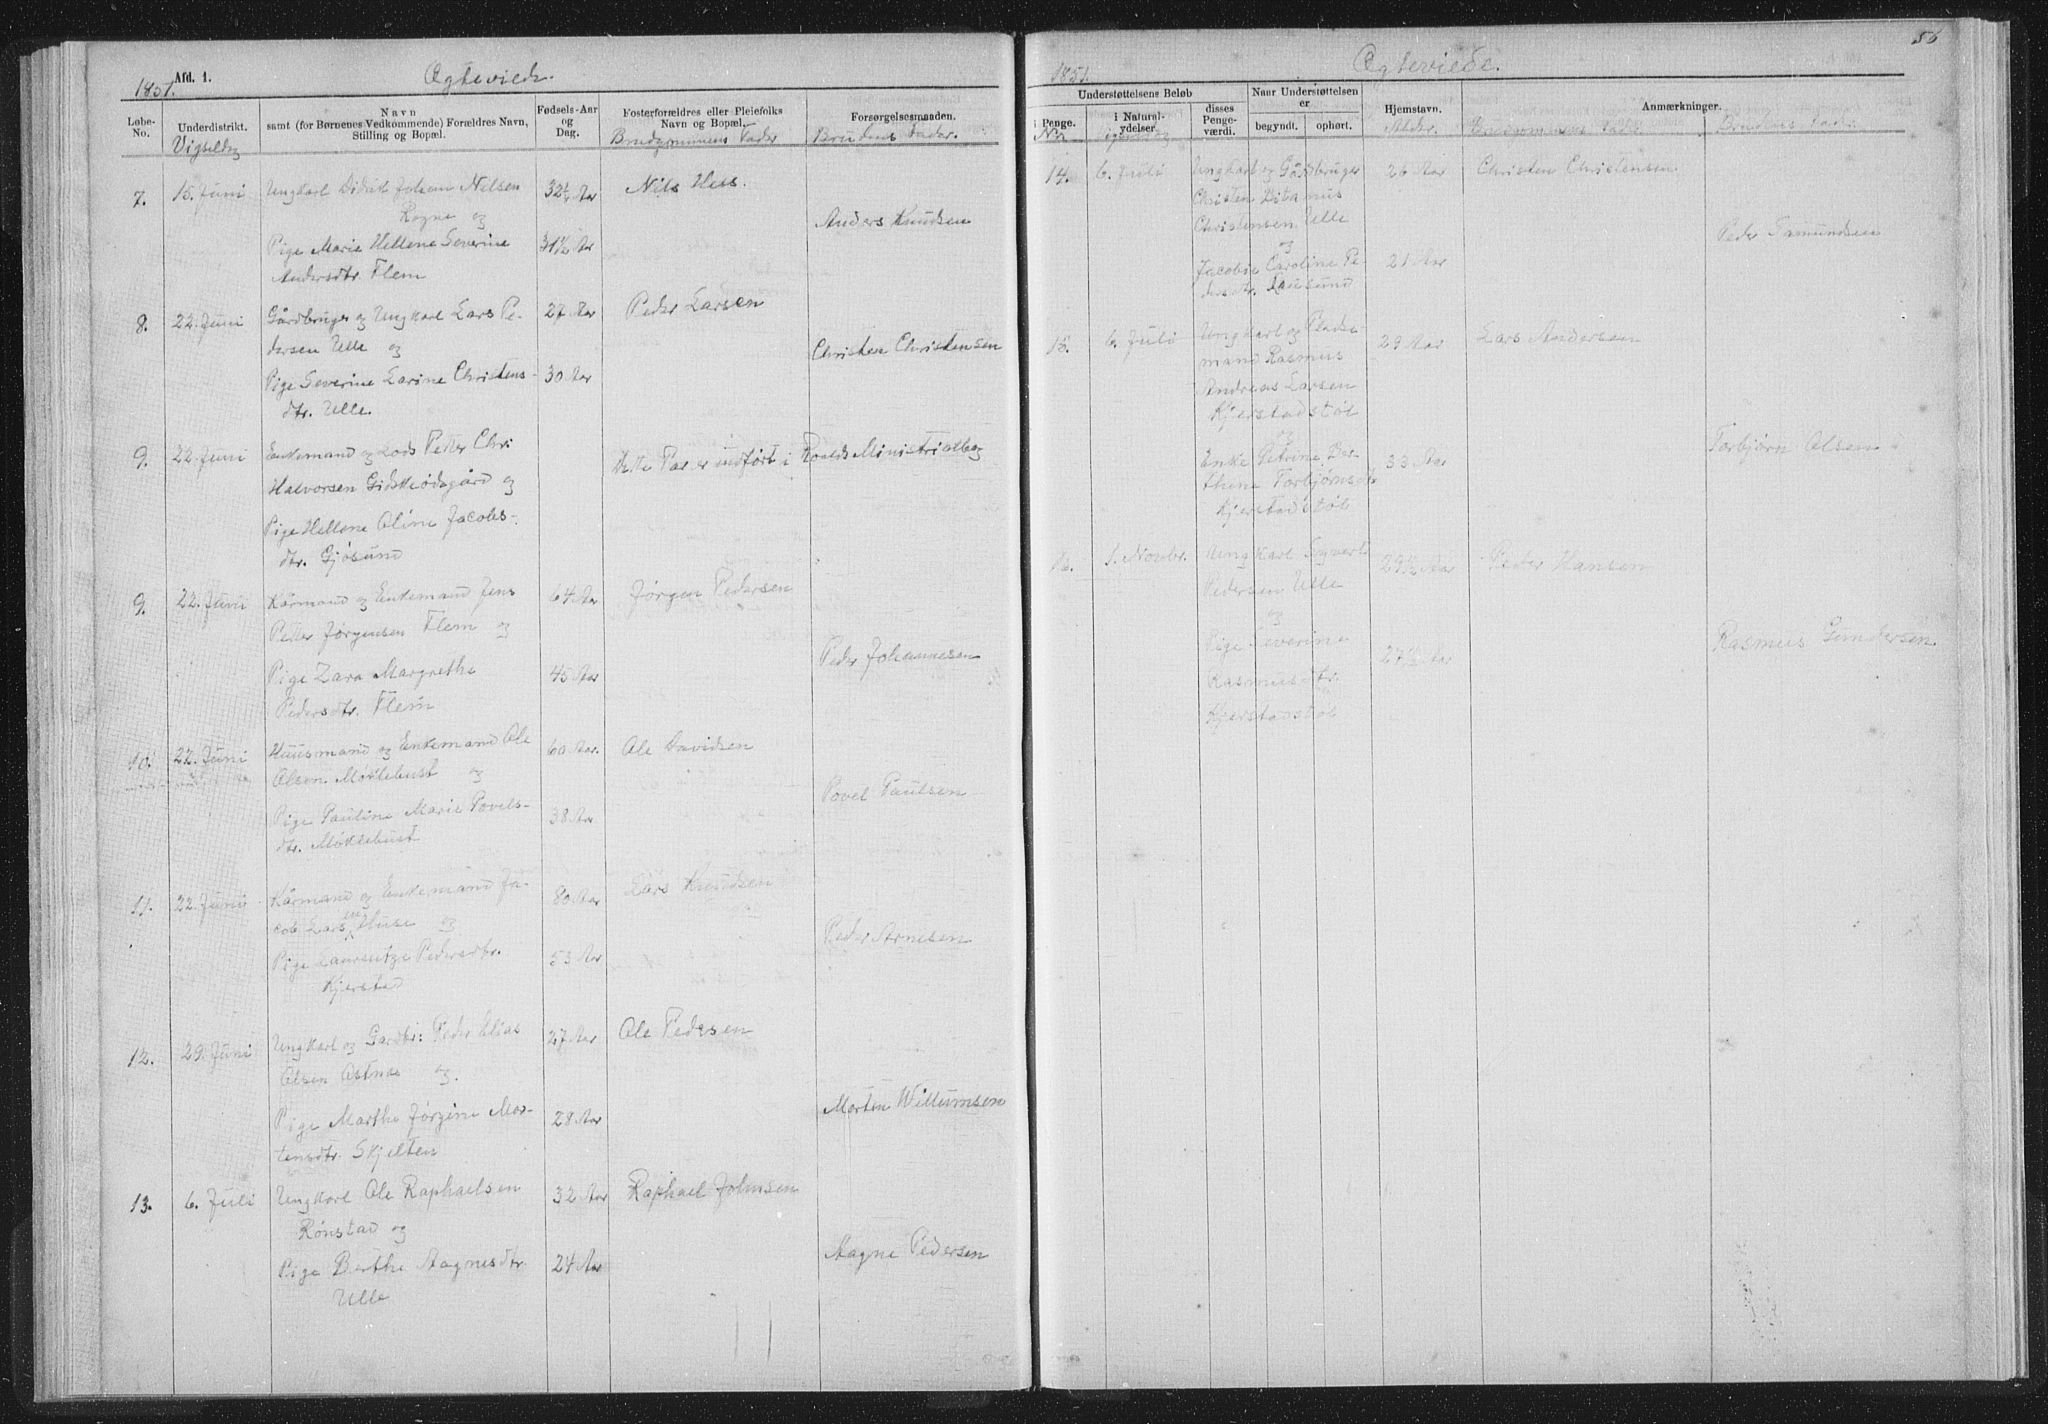 1851. Afd. 1. Ægteviede.
Løbe-No.
Underdistrikt.
Vigseldag
Navn
samt (for Børnenes Vedkommende) Forældres Navn,
Stilling og Bopæl.
Fødsels-Aar
og
Dag.
Fosterforældres eller Pleiefolks
Navn og Bopæl.
Brudgommens Fader
Forsørgelsesmaaden.
Brudens Fader.
7. 15. Juni Ungkarl Didrik Johan Nilsen 32½ Aar Nils Hess.
Rogne og
Anders Knudsen
Pige Marie Hellene Severine 31½ Aar
Andersdtr. Flem
8. 22. Juni Gårdbruger og Ungkarl Lars Pe- 27 Aar Peder Larsen
dersen Ulle og
Christen Christensen
Pige Severine Larine Christens- 30 Aar
dtr. Ulle.
9. 22. Juni Enkemand og Lods Petter Chri Dette Par er indført i Roalds Ministrialbog
Halvorsen Gidskeødegård og
Pige Hellene Oline Jacobs-
dtr. Gjøsund
9. 22. Juni Kårmand og Enkemand Jens 64 Aar Jørgen Pedersen
Petter Jørgensen Flem og
Peder Johannesen
Pige Zara Margrethe 45 Aar
Pedersdtr. Flem
10. 22. Juni Huusmand og Enkemand Ole 60 Aar. Ole Davidsen
Olsen Møklebust og
Povel Paulsen
Pige Pauline Marie Povels- 38 Aar
dtr. Møklebust
11. 22. Juni Kårmand og Enkemand Ja- 80 Aar Lars Knudsen
cob Larsen Huse og
Peder Arnesen
Pige Laurentze Pedersdtr. 53 Aar
Kjerstad
12. 29. Juni Ungkarl og Gardbr: Peder Elias 27 Aar Ole Pedersen
Olsen Østnæs og.
Morten Willumsen
Pige Marthe Jørgine Mor- 28 Aar
tensdtr. Skjelten
13. 6. Juli Ungkarl Ole Raphaelsen 32 Aar Raphael Johnsen
Rønstad og
Magne Pedersen
Pige Berthe Magnesdtr. 24 Aar
Ulle
56
1851. Ægteviede.
Understøttelsens Beløb
i Penge.
No.
i Natural-
ydelser.
disses
Penge-
værdi.
Naar Understøttelsen
er
begyndt.
ophørt.
Hjemstavn.
Alder.
Anmærkninger.
Brudgommens Fader
Brudens Fader
14. 6. Juli Ungkarl og Gårdbruger 26 Aar Christen Christensen
Christen Ditamus
Christensen Ulle
Peder Samundsen
og
Jacobie Caroline Pe- 21 Aar
dersdtr. Rausund
15. 6. Juli Ungkarl og Pladse- 29 Aar Lars Andersen
mand Rasmus
Andreas Larsen
Kjerstadstøl
og
Torbjørn Olsen
Enke Petrine Bar- 33 Aar
thene Torbjørnsdtr
Kjerstadstøl
16. 1. Novbr. Ungkarl Syvert 29½ Aar Peder Hansen
Pedersen Ulle
og
Pige Severine 27½ Aar Rasmus Gundersen
Rasmusdtr.
Kjerstadstøl